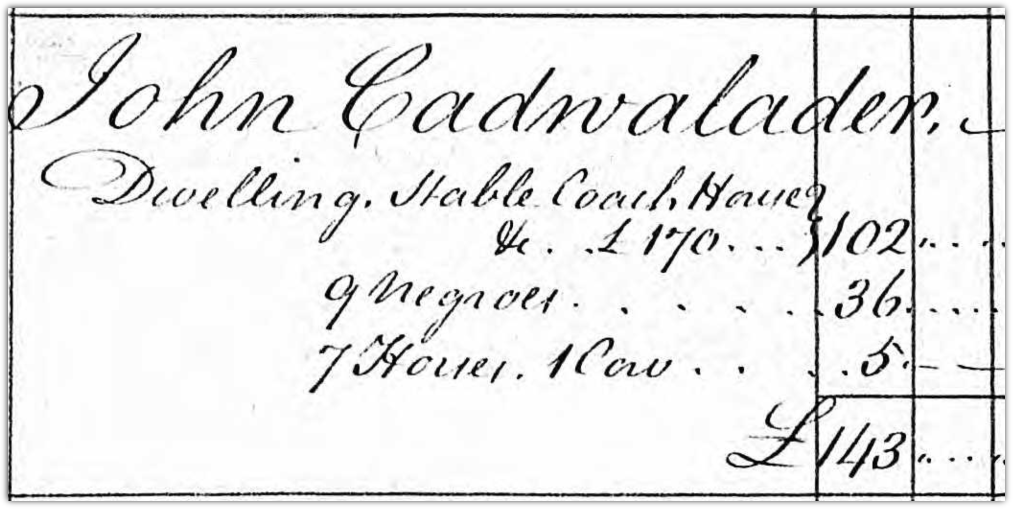 John Cadwalader.
Dwelling. Stable Coach House
&c. . £170 . . . } 102 . . . .
9 Negroes . . . . . . 36 . . . .
7 Horses. 1 Cow . . . . 5 . — —
£ 143 . . . .